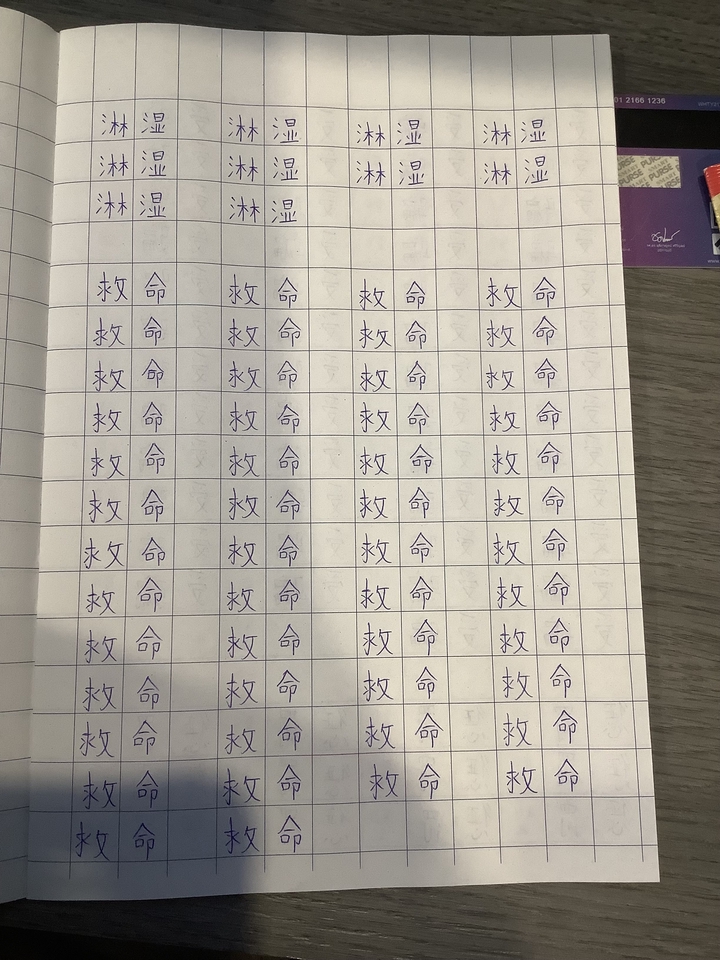 淋湿 淋湿 淋湿 淋湿
淋湿 淋湿 淋湿 淋湿
淋湿 淋湿
救命 救命 救命 救命
救命 救命 救命 救命
救命 救命 救命 救命
救命 救命 救命 救命
救命 救命 救命 救命
救命 救命 救命 救命
救命 救命 救命 救命
救命 救命 救命 救命
救命 救命 救命 救命
救命 救命 救命 救命
救命 救命 救命 救命
救命 救命 救命 救命
救命 救命
01 2166 1236
PURSE